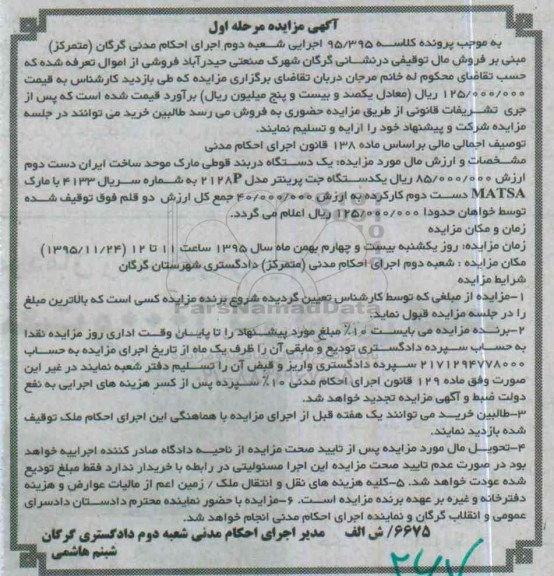 آگهی مزایده مرحله اول
به موجب پرونده کلاسه ۹۵/۳۹۵ اجرایی شعبه دوم اجرای احکام مدنی گرگان (متمرکز)
مبنی بر فروش مال توقیفی درنشانی گرگان شهرک صنعتی حیدرآباد فروشی از اموال تعرفه شده که
حسب تقاضای محکوم له خانم مرجان دربان تقاضای برگزاری مزایده که طی بازدید کارشناس به قیمت
۱۲۵/۰۰۰/۰۰۰ ریال (معادل یکصد و بیست و پنج میلیون ریال) برآورد قیمت شده است که پس از
جری تشریفات قانونی از طریق مزایده حضوری به فروش می رسد طالبین خرید می توانند در جلسه
مزایده شرکت و پیشنهاد خود را ارایه و تسلیم نمایند.
توصیف اجمالی مالی براساس ماده ۱۳۸ قانون اجرای احکام مدنی
مشخصات و ارزش مال مورد مزایده: یک دستگاه دربند قوطی مارک موحد ساخت ایران دست دوم
ارزش ۸۵/۰۰۰/۰۰۰ ریال یکدستگاه جت پرینتر مدل ۲۱۲۸P به شماره سریال ۴۱۳۳ با مارک
MATSA دست دوم کارکرده به ارزش ۴۰/۰۰۰/۰۰۰ جمع کل ارزش دو قلم فوق توقیف شده
توسط خواهان حدودا ۱۲۵/۰۰۰/۰۰۰ ریال اعلام می گردد.
زمان و مکان مزایده
زمان مزایده: روز یکشنبه بیست و چهارم بهمن ماه سال ۱۳۹۵ ساعت ۱۱ تا ۱۲ (۱۳۹۵/۱۱/۲۴)
مکان مزایده : شعبه دوم اجرای احکام مدنی (متمرکز) دادگستری شهرستان گرگان
شرایط مزایده
۱-مزایده از مبلغی که توسط کارشناس تعیین گردیده شروع برنده مزایده کسی است که بالاترین مبلغ
را در جلسه مزایده قبول نماید.
۲-برنده مزایده می بایست ۱۰٪ مبلغ مورد پیشنهاد را تا پایان وقت اداری روز مزایده نقدا
به حساب سپرده دادگستری تودیع و مابقی آن را ظرف یک ماه از تاریخ اجرای مزایده به حساب
۲۱۷۱۲۹۴۷۷۸۰۰۰ سپرده دادگستری واریز و قبض آن را تسلیم دفتر شعبه نمایند در غیر این
صورت وفق ماده ۱۲۹ قانون اجرای احکام مدنی ۱۰٪ سپرده پس از کسر هزینه های اجرایی به نفع
دولت ضبط و آگهی مزایده تجدید خواهد شد.
۳-طالبین خرید می توانند یک هفته قبل از اجرای مزایده با هماهنگی این اجرای احکام ملک توقیف
شده بازدید نمایند.
۴-تحویل مال مورد مزایده پس از تایید صحت مزایده از ناحیه دادگاه صادر کننده اجراییه خواهد
بود در صورت عدم تایید صحت مزایده این اجرا مسئولیتی در رابطه با خریدار ندارد فقط مبلغ تودیع
شده عودت خواهد شد. ۵-کلیه هزینه های نقل و انتقال ملک / زمین اعم از مالیات عوارض و هزینه
دفترخانه و غیره بر عهده برنده مزایده است. ۶-مزایده با حضور نماینده محترم دادستان دادسرای
عمومی و انقلاب گرگان و نماینده اجرای احکام مدنی انجام خواهد شد.
۶۶۷۵/ ش الف مدیر اجرای احکام مدنی شعبه دوم دادگستری گرگان
شبنم هاشمی
ParsNamadData